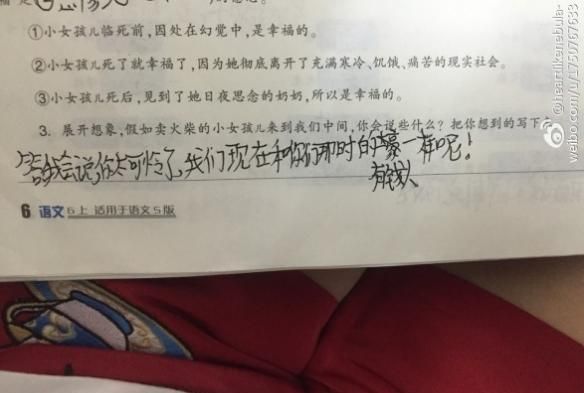 ①小女孩儿临死前,因处在幻觉中,是幸福的。
②小女孩儿死了就幸福了,因为她彻底离开了充满寒冷、饥饿、痛苦的现实社会。
③小女孩儿死后,见到了她日夜思念的奶奶,所以是幸福的。
3. 展开想象,假如卖火柴的小女孩儿来到我们中间,你会说些什么?把你想到的写下
我会说,你太可怜了,我们现在和你们那时的 一样呢!
有钱人
6 语文 6上 适用于语文S版
@heartlikenebula-
weibo.com/u/1750767633